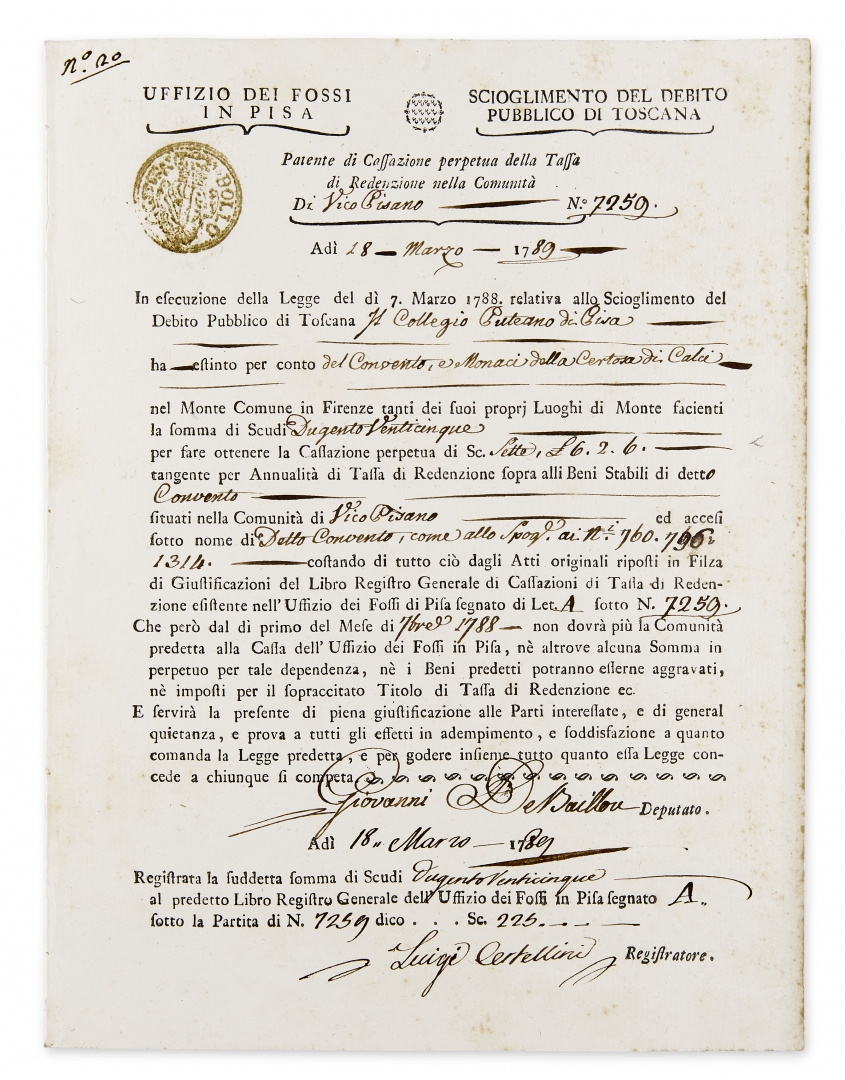 N.º 20
UFFIZIO DEI FOSSI
IN PISA
SCIOGLIMENTO DEL DEBITO
PUBBLICO DI TOSCANA
BOLLO
Patente di Caſſazione perpetua della Taſſa
di Redenzione nella Comunità
Di Vico Pisano N.º 7259.
Adì 18 Marzo 1789
In eſecuzione della Legge del dì 7. Marzo 1788. relativa allo Scioglimento del
Debito Pubblico di Toscana Il Collegio Puteano di Pisa
ha eſtinto per conto del Convento, e Monaci della Certosa di Calci
nel Monte Comune in Firenze tanti dei suoi proprj Luoghi di Monte facienti
la somma di Scudi Dugento Venticinque
per fare ottenere la Caſſazione perpetua di Sc. Sette, £ 6. 2. 6.
tangente per Annualità di Taſſa di Redenzione sopra alli Beni Stabili di detto
Convento
ſituati nella Comunità di Vico Pisano ed acceſi
ſotto nome di Detto Convento, come allo Spog.º ai N.i 760.
1314. coſtando di tutto ciò dagli Atti originali ripoſti in Filza
di Giuſtificazioni del Libro Regiſtro Generale di Caſſazioni di Taſſa di Reden-
zione eſiſtente nell'Uffizio dei Foſſi di Piſa ſegnato di Let. A ſotto N. 7259.
Che però dal dì primo del Mese di 7bre 1788 non dovrà più la Comunità
predetta alla Caſſa dell'Uffizio dei Foſſi in Piſa, nè altrove alcuna Somma in
perpetuo per tale dependenza, nè i Beni predetti potranno eſſerne aggravati,
nè impoſti per il sopraccitato Titolo di Taſſa di Redenzione ec.
E ſervirà la presente di piena giuſtificazione alle Parti intereſſate, e di general
quietanza, e prova a tutti gli effetti in adempimento, e soddisfazione a quanto
comanda la Legge predetta, e per godere inſieme tutto quanto eſſa Legge con-
cede a chiunque ſi competa
Giovanni De Baillou Deputato.
Adì 18 Marzo 1789
Regiſtrata la ſuddetta somma di Scudi dugento Venticinque
al predetto Libro Regiſtro Generale dell'Uffizio dei Foſſi in Piſa ſegnato A
ſotto la Partita di N. 7259 dico . . . Sc. 225.
Luigi Certellini Regiſtratore.